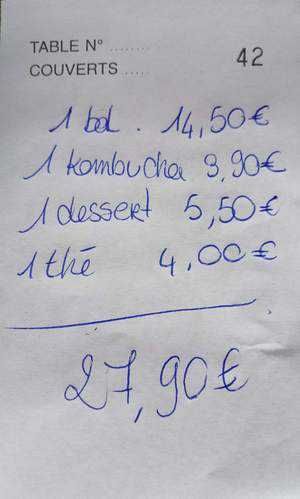 TABLE N° ........
COUVERTS ..... 42
1 bol . 14,50€
1 kombucha 3,90€
1 dessert 5,50€
1 thé 4,00€
27,90€